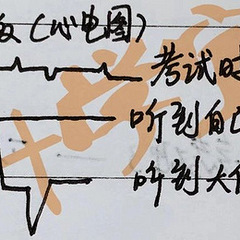 (心电图)
考试时
听到自己
听到大